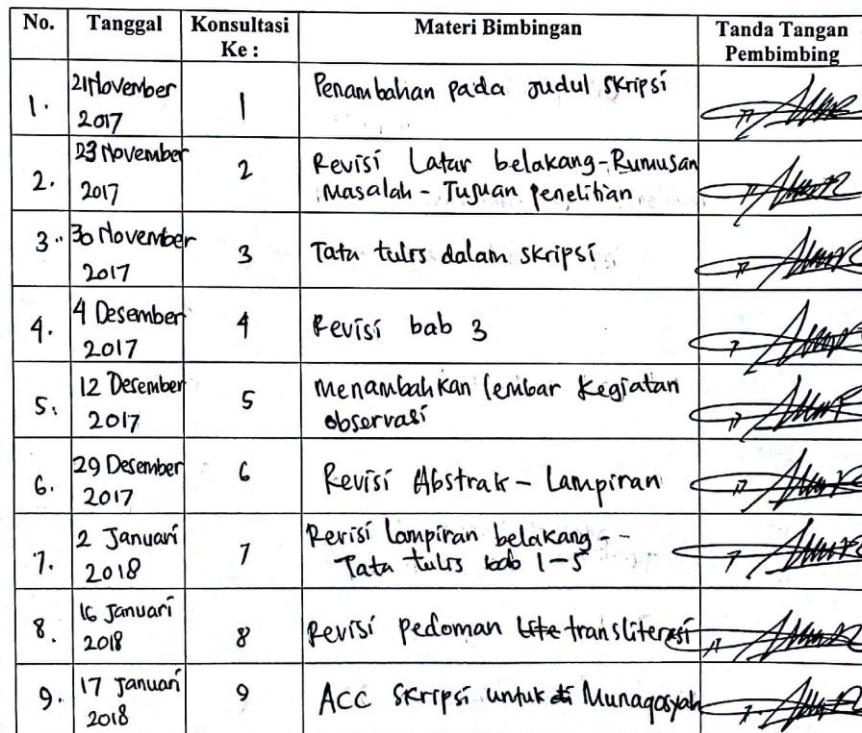 No. Tanggal Konsultasi Ke : Materi Bimbingan Tanda Tangan Pembimbing
1. 21 November 2017 1 Penambahan pada judul skripsi
2. 23 November 2017 2 Revisi Latar belakang-Rumusan
Masalah - Tujuan penelitian
3. 30 November 2017 3 Tata tulis dalam skripsi
4. 4 Desember 2017 4 Revisi bab 3
5. 12 Desember 2017 5 Menambahkan lembar kegiatan
observasi
6. 29 Desember 2017 6 Revisi Abstrak - Lampiran
7. 2 Januari 2018 7 Revisi lampiran belakang -
Tata tulis bab 1-5
8. 16 Januari 2018 8 Revisi pedoman transliterasi
9. 17 Januari 2018 9 ACC Skripsi untuk di Munaqosyah